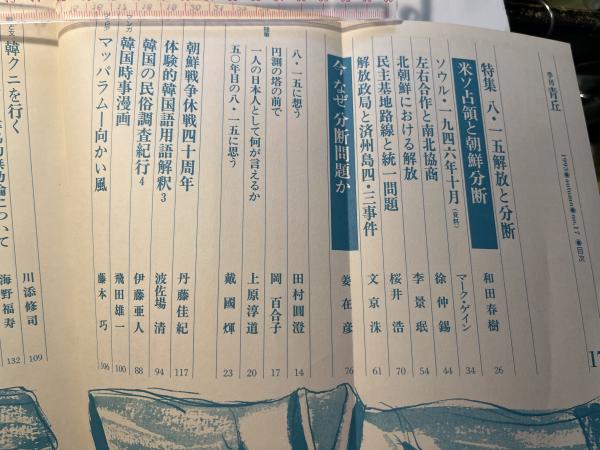 季刊 青丘
1993●autumn●no.17 ●目次
特集 八・一五解放と分断
米ソ占領と朝鮮分断 和田春樹 26
ソウル・一九四六年十月(資料) マーク・ゲイン 34
左右合作と南北協商 徐仲錫 44
北朝鮮における解放 李景珉 54
民主基地路線と統一問題 桜井 浩 70
解放政局と済州島四・三事件 文京洙 61
今なぜ分断問題か 姜在彦 76
随筆
八・一五に想う 田村圓澄 14
円測の塔の前で 岡 百合子 17
一人の日本人として何が言えるか 上原淳道 20
五〇年目の八・一五に思う 戴國煇 23
朝鮮戦争休戦四十周年 丹藤佳紀 117
体験的韓国語用語解釈3 波佐場 清 94
韓国の民俗調査紀行4 伊藤亜人 88
韓国時事漫画 飛田雄一 100
マッパラム―向かい風 藤本 巧 106
韓クニを行く 川添修司 109
について 海野福寿 132
17